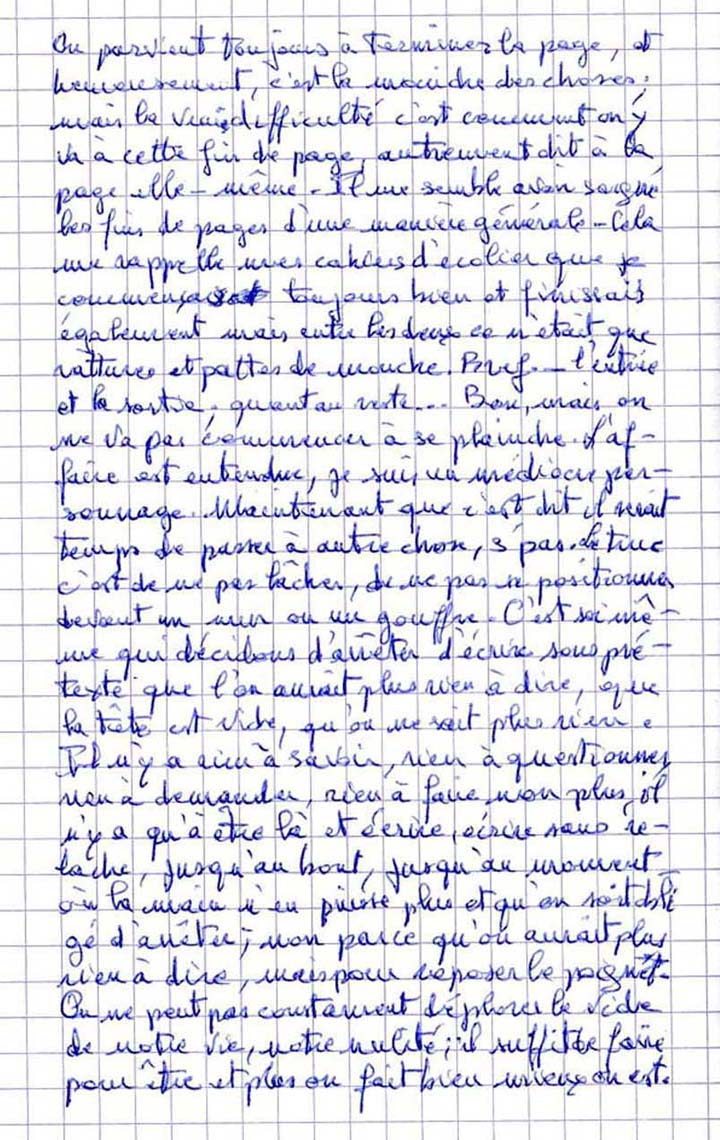 On parvient toujours à terminer la page, et
heureusement, c'est la moindre des choses;
mais la vraie difficulté c'est comment on y
va à cette fin de page, autrement dit à la
page elle-même. Il me semble avoir soigné
les fins de pages d'une manière générale. Cela
me rappelle mes cahiers d'écolier que je
commençais toujours bien et finissais
également mais entre les deux ce n'était que
rattures et pattes de mouche. Bref. _ l'entrée
et la sortie, quant au reste... Bon, mais on
ne va pas commencer à se plaindre. L'af-
faire est entendue, je suis un médiocre per-
sonnage. Maintenant que c'est dit il serait
temps de passer à autre chose, s'pas. Le truc
c'est de ne pas lâcher, de ne pas se positionner
devant un mur ou un gouffre. C'est soi mê-
me qui décidons d'arrêter d'écrire sous pré-
texte que l'on aurait plus rien à dire, que
la tête est vide, qu'on ne sait plus rien.
Il n'y a rien à savoir, rien à questionner
rien à demander, rien à faire non plus, il
n'y a qu'à être là et écrire, écrire sans re-
lâche, jusqu'au bout, jusqu'au moment
où la main n'en puisse plus et qu'on soit obli
gé d'arrêter; non parce qu'on aurait plus
rien à dire, mais pour reposer le poignet.
On ne peut pas constament déplorer le vide
de notre vie, notre nulité; il suffit de faire
pour être et plus on fait bien mieux on est.